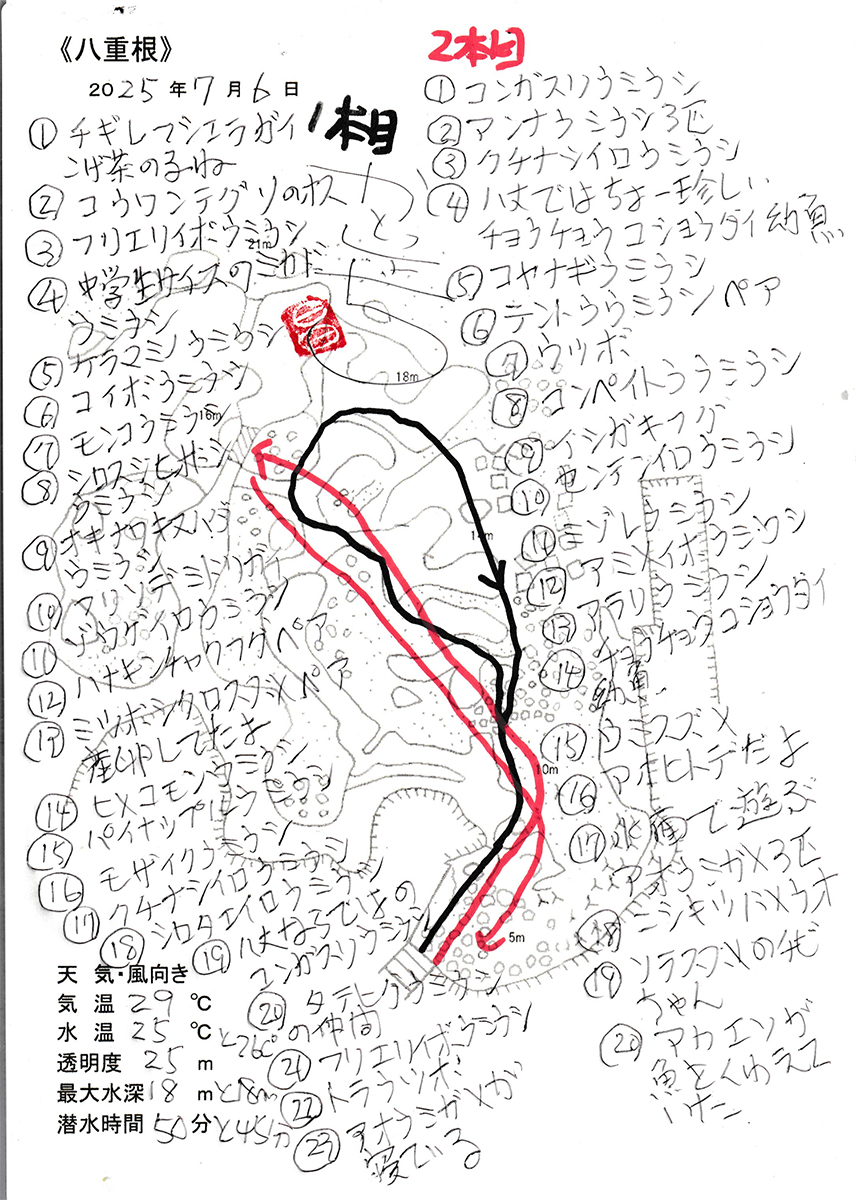 《八重根》
2025年7月6日
1本目
① チギレフシエラガイ
こげ茶のるね
② コウワンテグリのオス
③ フリエリイボウミウシ
④ 中学生サイズのミカド
ウミウシ
⑤ ケラマミノウミウシ
⑥ コイボウミウシ
⑦ モンコウミウシ
⑧ シロスジヒオドシ
ウミウシ
⑨ オキナワキヌハダ
ウミウシ
⑩ アリソデミドリガイ
⑪ ゾウゲイロウミウシ
⑫ ハナキンチャクフグペア
⑬ ミツボシクロスズメペア
産卵してたよ
⑭ ヒメコモンウミウシ
⑮ パイナップルウミウシ
⑯ モザイクウミウシ
⑰ クチナシイロウミウシ
⑱ シロタエイロウミウシ
⑲ 八丈ならではの
コンガスリウミウシ
⑳ タテヒダウミウシ
の仲間
㉑ フリエリイボウミウシ
㉒ トラウツボ
㉓ アオウミガメが
寝ている
2本目
① コンガスリウミウシ
② アンナウミウシ3匹
③ クチナシイロウミウシ
④ 八丈ではちょー珍しい
チョウチョウコショウダイ幼魚
⑤ コヤナギウミウシ
⑥ テントウウミウシペア
⑦ ウツボ
⑧ コンペイトウウミウシ
⑨ イシガキフグ
⑩ センテンイロウミウシ
⑪ ミゾレウミウシ
⑫ アミメイボウミウシ
⑬ アラリウミウシ
⑭ チョウチョウコショウダイ
幼魚
⑮ ウミスズメ
⑯ アオヒトデだよ
⑰ 水面で遊ぶ
アオウミガメ3匹
⑱ ニシキツバメウオ
⑲ ソラスズメのチビ
ちゃん
⑳ アカエソが
魚をくわえて
いた
21m
18m
16m
10m
5m
天気・風向き
気温 29 ℃
水温 25 ℃と26°
透明度 25 m
最大水深 18 mと18m
潜水時間 50分と45分